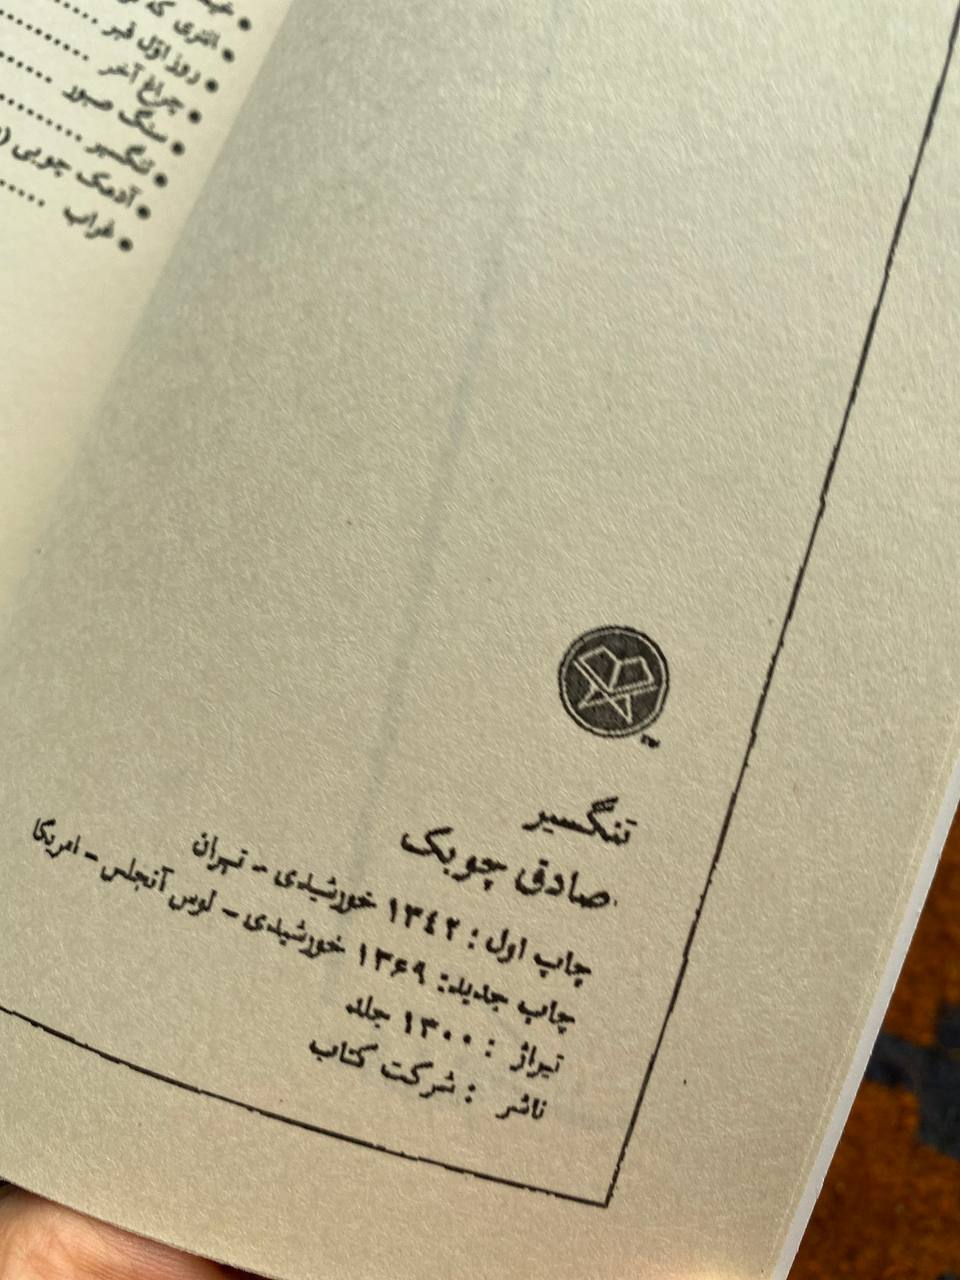 انتری که
روز اوّل قبر
چراغ آخر
سنگ صبور
تنگسیر
آدمک چوبی
غراب
تنگسیر
صادق چوبک
چاپ اول : ۱۳٤۲ خورشیدی - تهران
چاپ جدید: ۱۳۶۹ خورشیدی - لوس آنجلس - امریکا
تیراژ : ۱۳۰۰ جلد
ناشر : شرکت کتاب